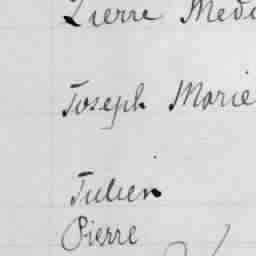 Pierre Méd
Joseph Marie
Julien
Pierre